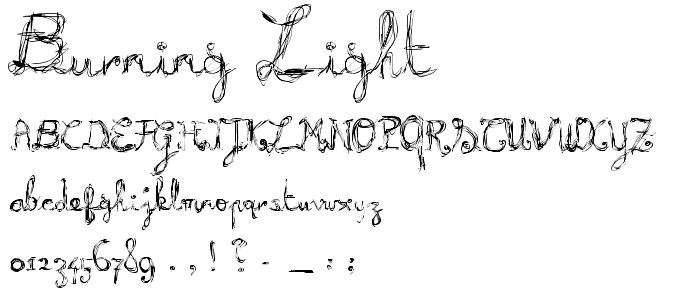 Burning Light
ABCDEFGHIJKLMNOPQRSTUVWXYZ
abcdefghijklmnopqrstuvwxyz
0123456789 . , ! ? - _ : ;